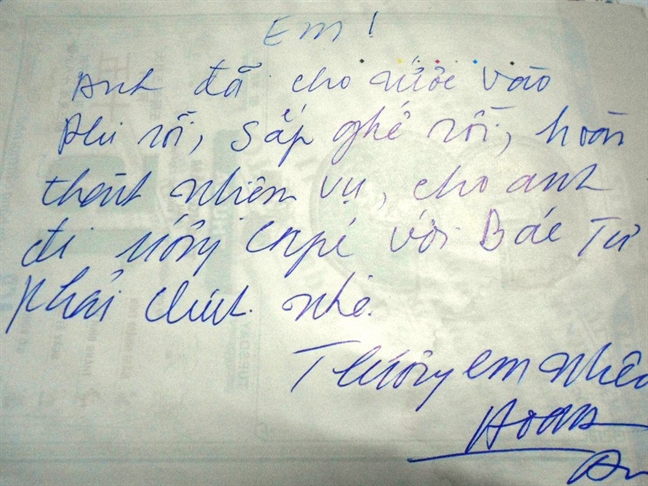 Em!
Anh đã cho nước vào
phi rồi, sắp ghế rồi, hoàn
thành nhiệm vụ, cho anh
đi uống Cà phê với Bác Tư
phải chút nhé.
Thương em nhiều